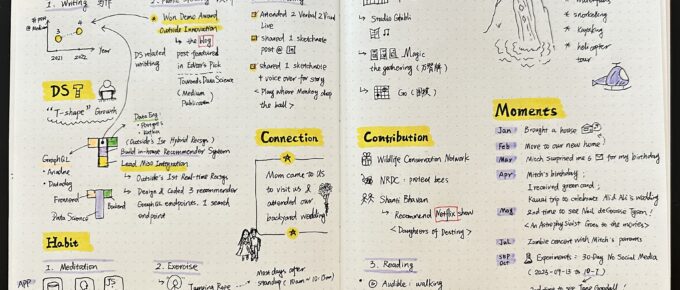 1. Writing 寫作
2. Public Speaking
# post
@ Medium
3
4
2021
2022
Year
Won Demo Award
Outside Innovation
the blog
post featured
in Editor's Pick
DS related
writing
Towards Data Science
(Medium
Publication)
Attended 2 Verbal 2 Visual
Live
shared 1 sketchnote
post @ in
shared 1 sketchnote
+ voice over for story
< Play where Monkey drop
the ball >
DS T
"T-shape" Growth
Data Eng
Postgres
Kafka
(Outside's 1st Hybrid Recsys)
Build in-house Recommender System
Lead Miso Integration
Outside's 1st Real-time Recsys
Design & Coded 3 recommender
GraphQL endpoints. 1 search
endpoint
GraphQL
Ariadne
Datadog
Frontend
Backend
Data Science
Connection
Mom came to US
to visit us &
attended our
backyard wedding!
Habit
1. Meditation
2. Exercise
APP
JS
Jumping Rope
most days after
standup (10am ~ 10:15am)
Studio Ghibli
Magic
the gathering
Go (圍棋)
snorkeling
Kayaking
helicopter
tour
Contribution
Wildlife Conservation Network
NRDC: protect bees
Shanti Bhavan
Recommend Netflix show
< Daughters of Destiny >
3. Reading
Audible: walking
Moments
Jan
Brought a house
Feb
Move to our new home!
Mar
Mitch surprised me 6 for my birthday
Apr
Mitch's birthday;
I received green card;
Kauai trip to celebrate Ali & Ali's wedding
May
2nd time to see Neil deGrasse Tyson!
< An Astrophysicist Goes to the movies >
Jul
Zombie concert with Mitch's parents
Sep
Oct
Experiments: 30-Day No Social Media
2nd time to see Jane Goodall!